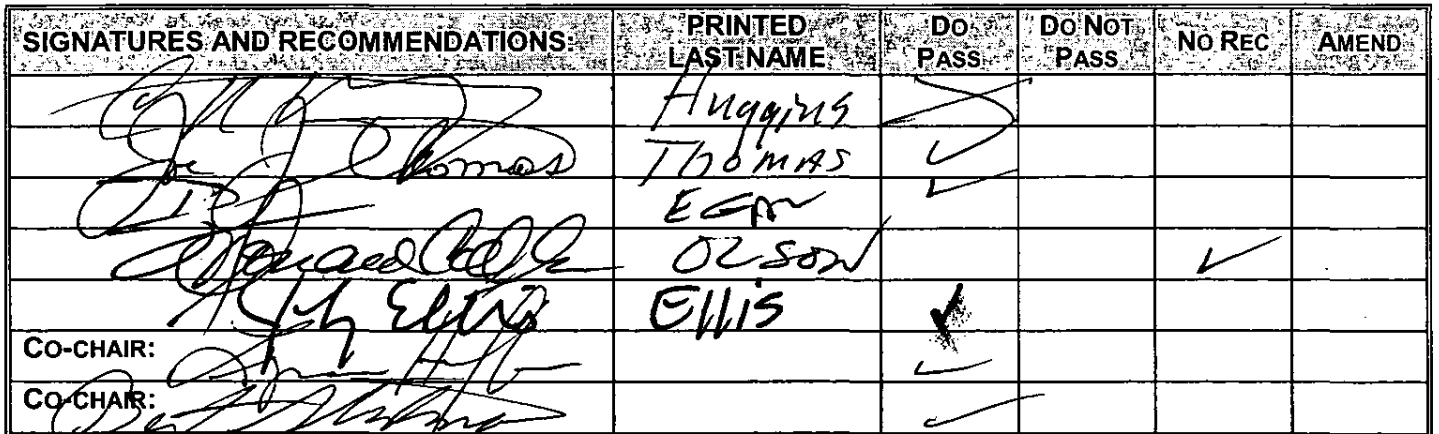 SIGNATURES AND RECOMMENDATIONS: PRINTED LAST NAME DO PASS DO NOT PASS NO REC AMEND
Huggins
Joe J Thomas THOMAS ✓
EGAN ✓
Donald Olson OLSON ✓
Johnny Ellis Ellis ✓
CO-CHAIR: ✓
CO-CHAIR: ✓